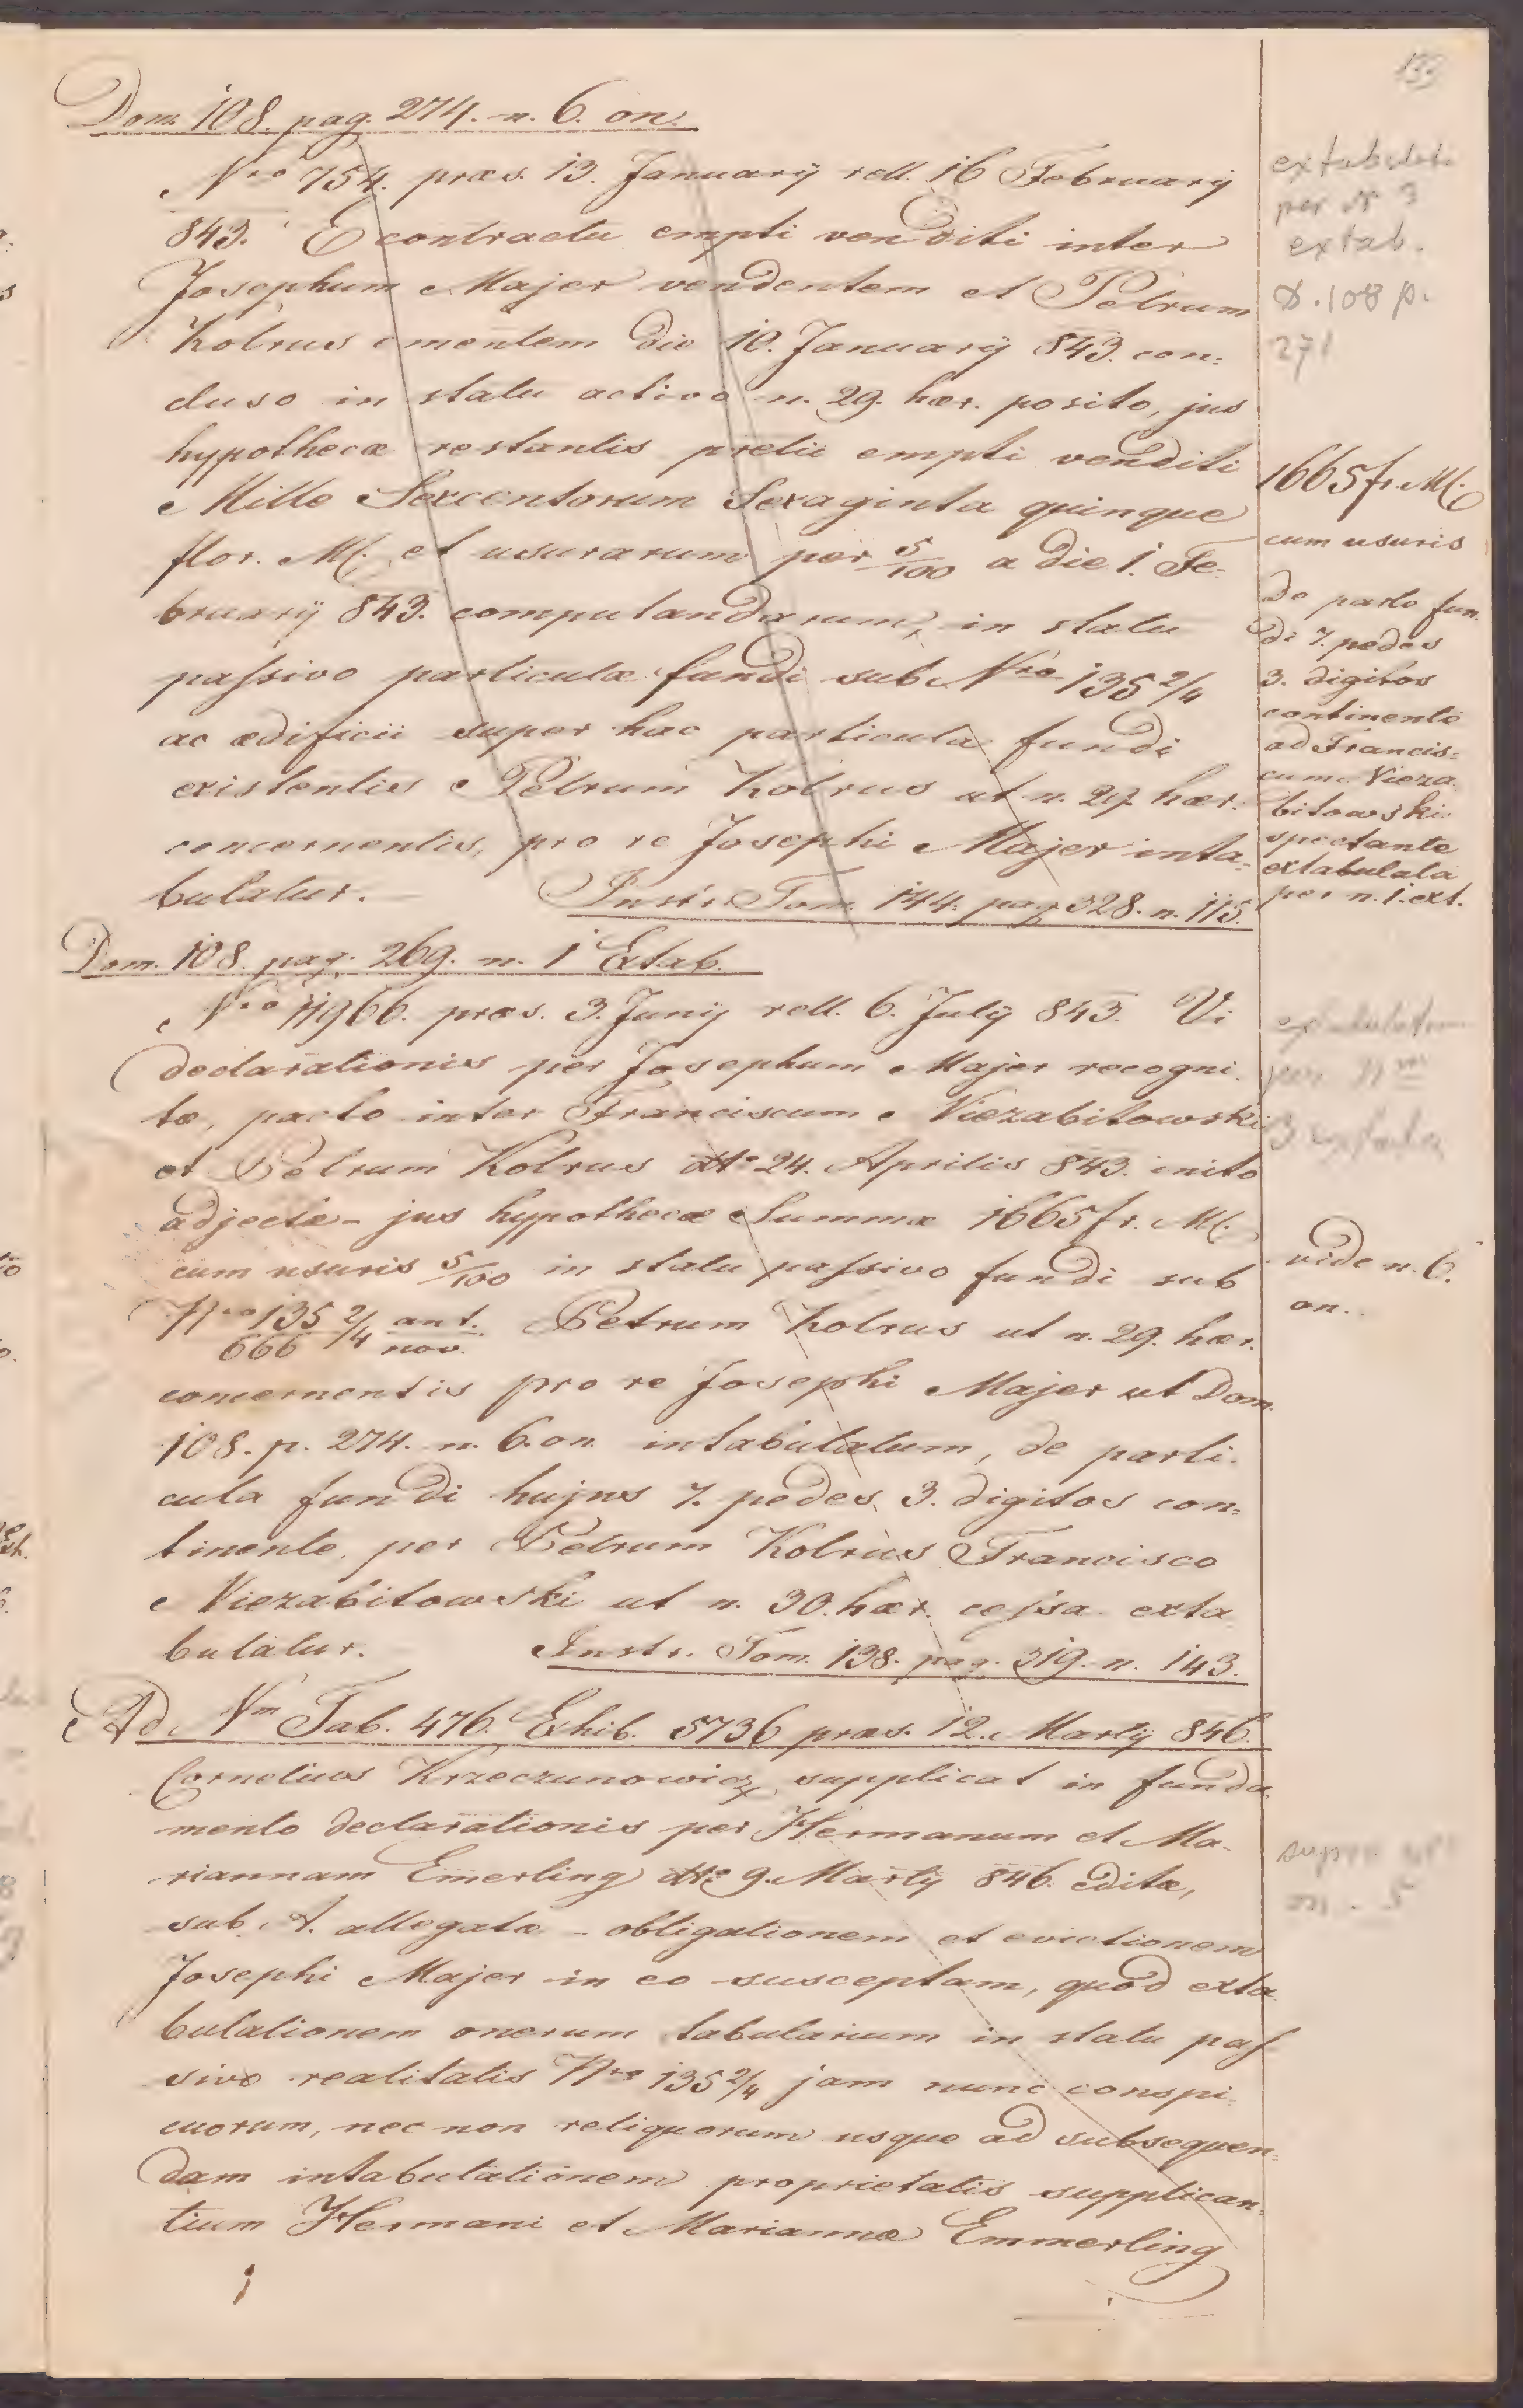 Dom. 108. pag. 274. n. 6. on.
Nro 754. præs. 13. Januarÿ rell. 16 Februarÿ
843. E contractu empti venditi inter
Josephum Majer vendentem et Petrum
Kolrus ementem die 10. Januarÿ 843. con:
cluso in statu activo n. 29. hær. posito, jus
hypothecæ restantis pretii empti venditi
Mille Sexcentorum Sexaginta quinque
flor. M. et usurarum per 5/100 a die 1. Fe:
bruarÿ 843. computandarum, in statu
passivo particulæ fundi sub Nro 135 2/4
ac ædificii super hac particula fundi
existentis Petrum Kolrus ut n. 29. hær.
concernentis, pro re Josephi Majer inta:
bulatur.
Instr. Tom. 144. pag. 328. n. 115.
extabulata
per N 3
extab.
D. 108 p.
271
1665 fr. M.
cum usuris
de parte fun.
di 7. pedes
3. digitos
continente
ad Francis:
cum Nieza.
bitowski
spectante
extabulata
per n. 1. ext.
Dom. 108. pag. 269. n. 1 Extab.
Nro 11966. præs. 3. Junÿ rell. 6. Julÿ 843. Vi
declarationis per Josephum Majer recogni.
tæ, pacto inter Franciscum Niezabitowski
et Petrum Kolrus dto 24. Aprilis 843. inito
adjectæ - jus hypothecæ Summæ 1665 fr. M.
cum usuris 5/100 in statu passivo fundi sub
Nro 135/666 2/4 ant./nov. Petrum Kolrus ut n. 29. hær.
concernentis pro re Josephi Majer ut Dom.
108. p. 274. n. 6. on. intabulatum, de parti.
cula fundi hujus 7. pedes, 3. digitos con:
tinente, per Petrum Kolrus Francisco
Niezabitowski ut n. 30. hær. cessa exta
bulatur.
Instr. Tom. 138. pag. 319. n. 143.
vide n. 6.
on.
Ad Nm Tab. 476. Exhib. 5736 præs. 12. Martÿ 846.
Cornelius Krzeczunowicz supplicat in funda.
mento declarationis per Hermanum et Ma.
riannam Emerling dto 9. Martÿ 846. editæ,
sub A. allegatæ - obligationem et evictionem
Josephi Majer in eo susceptam, quod exta
bulationem onerum tabularium in statu pas
sivo realitatis Nro 135 2/4 jam nunc conspi.
cuorum, nec non reliquorum usque ad subsequen:
dam intabulationem proprietatis supplican:
tium Hermani et Mariannæ Emmerling